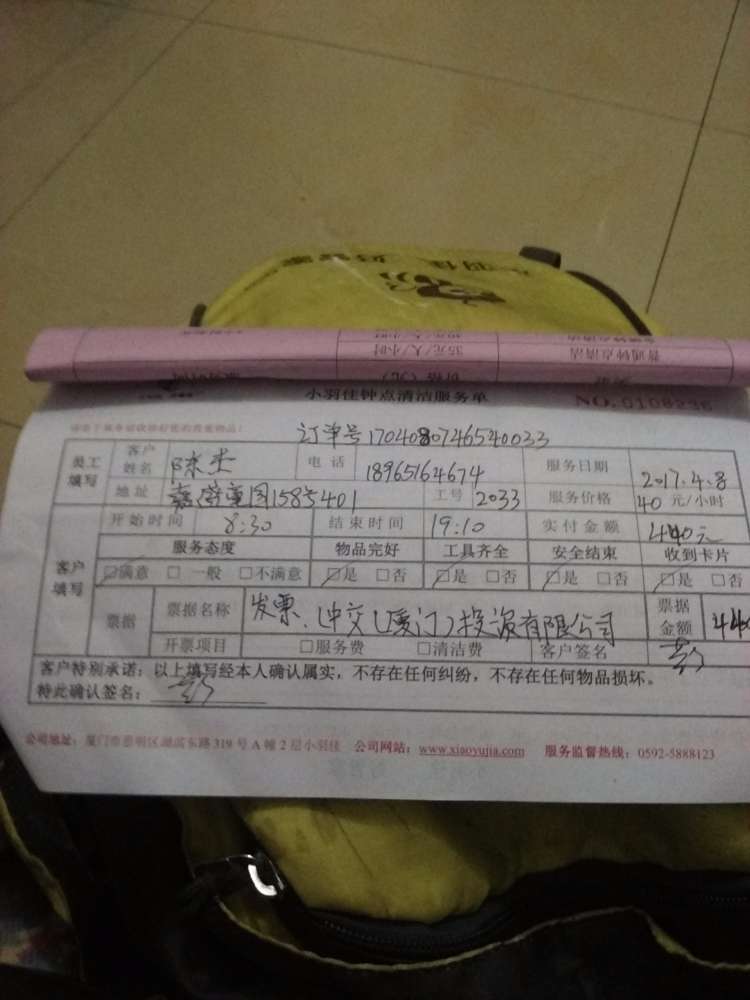 普通钟点清洁 35元/人/小时
价格(元)
小羽佳钟点清洁服务单 NO.0108236
订单号1704080746540033
员工填写 客户姓名 陈 电话 18965164674 服务日期 2017.4.8
地址 1585401 工号 2033 服务价格 40 元/小时
客户填写 开始时间 8:30 结束时间 19:10 实付金额 440元
服务态度 物品完好 工具齐全 安全结束 收到卡片
☑满意 □ 一般 □不满意 ☑是 □否 ☑是 □否 ☑是 □否 ☑是 □否
票据 票据名称 发票、(中交(厦门)投资有限公司 票据金额 440
开票项目 □服务费 □清洁费 客户签名
客户特别承诺:以上填写经本人确认属实,不存在任何纠纷,不存在任何物品损坏。
特此确认签名:
公司地址:厦门市思明区湖滨东路319号A幢2层小羽佳 公司网站:www.xiaoyujia.com 服务监督热线:0592-5888123